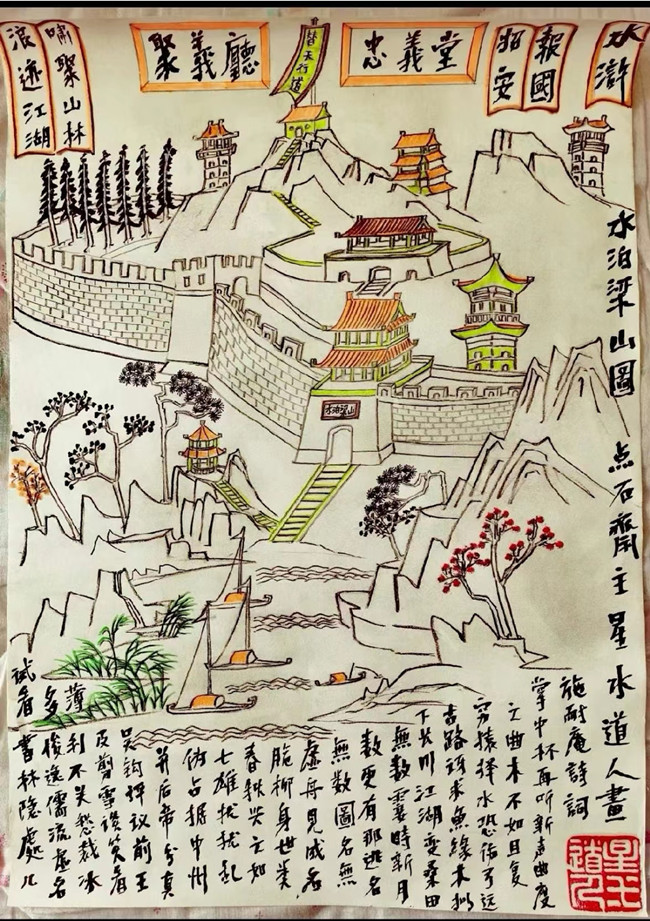 水滸
報國
招安
忠義堂
聚義廳
嘯聚山林
浪迹江湖
替天行道
水泊梁山
水泊梁山圖 点石齋主星水道人畫
施耐庵詩詞
試看書林隱處几
多俊逸儒流虛名
薄利不关愁裁冰
及剪雪谈笑看
吴鈎评议前王
并后帝分真
伪占据中州
七雄扰扰乱
春秋兴亡如
脆柳身世类
虛舟見成名
無数圖名無
数更有那逃名
無数霎時新月
下长川江湖变桑田
古路讶求魚緣木拟
穷猿择木恐伤弓远
之曲木不如且复
掌中杯再听新声曲度
星水道人